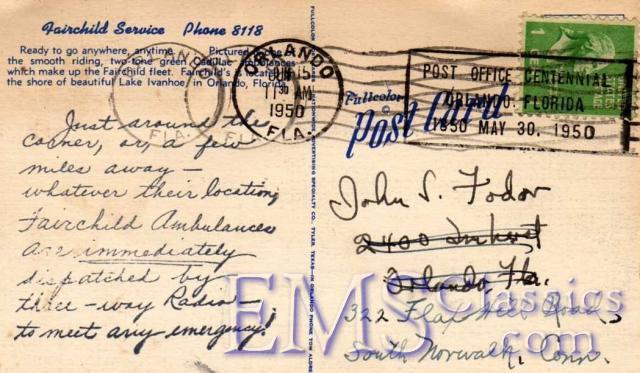 Fairchild Service Phone 8118
Ready to go anywhere, anytime. Pictured
the smooth riding, two-tone green Cadillac ambulances
which make up the Fairchild fleet. Fairchild's is located
the shore of beautiful Lake Ivanhoe in Orlando, Florida.
Just around the
corner, or, a few
miles away —
whatever their location,
Fairchild Ambulances
are immediately
dispatched by
three-way Radio —
to meet any emergency!
FULLCOLOR
ADVERTISING SPECIALTY CO., TYLER, TEXAS
IN ORLANDO PHONE TOM
ORLANDO
FLA.
ORLANDO
JUN 15
1 30 AM
1950
FLA.
POST OFFICE CENTENNIAL
ORLANDO, FLORIDA
1850 MAY 30, 1950
1
Fullcolor
Post Card
John S. Fodor
2400
Orlando, Fla.
322 Flax Hill Road,
South Norwalk, Conn.
EMSClassics
.com